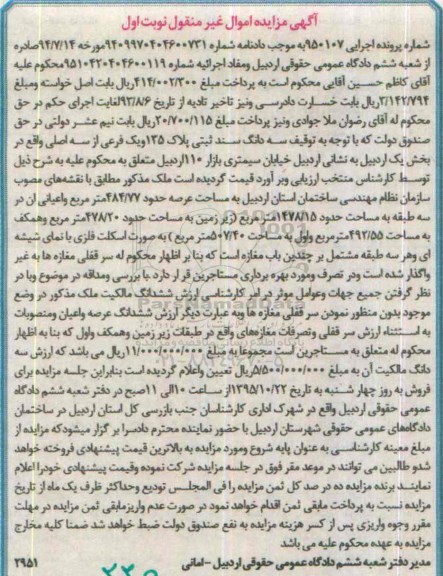 آگهی مزایده اموال غیر منقول نوبت اول
شماره پرونده اجرایی ۹۵۰۱۰۷به موجب دادنامه شماره ۹۴۰۹۹۷۰۴۰۴۶۰۰۷۳۱مورخه ۹۴/۷/۱۴صادره
از شعبه ششم دادگاه عمومی حقوقی اردبیل ومفاد اجرائیه شماره ۹۵۱۰۴۲۰۴۰۴۶۰۰۱۱۹محکوم علیه
آقای کاظم حسین آقایی محکوم است به پرداخت مبلغ ۴۱۴/۰۰۲/۳۰۰ریال بابت اصل خواسته ومبلغ
۳/۱۴۲/۷۹۴ریال بابت خسارت دادرسی ونیز تاخیر تادیه از تاریخ ۹۳/۸/۶لغایت اجرای حکم در حق
محکوم له آقای رضوان ملا جوادی ونیز پرداخت مبلغ ۲۰/۷۰۰/۱۱۵ریال بابت نیم عشر دولتی در حق
صندوق دولت که با توجه به توقیف سه دانگ سند ثبتی پلاک ۱۳۵ویک فرعی از سه اصلی واقع در
بخش یک اردبیل به نشانی اردبیل خیابان سیمتری بازار ۱۱۰اردبیل متعلق به محکوم علیه به شرح ذیل
توسط کارشناس منتخب ارزیابی وبر آورد قیمت گردیده است ملک مذکور مطابق با نقشه‌های مصوب
سازمان نظام مهندسی ساختمان استان اردبیل به مساحت عرصه حدود ۴۸۴/۷۷متر مربع واعیانی آن در
سه طبقه به مساحت حدود ۱۴۷۸/۱۵متر مربع (زیر زمین به مساحت حدود ۴۷۸/۲۰متر مربع وهمکف
به مساحت ۴۹۲/۵۵مترمربع واول به مساحت ۵۰۷/۴۰متر مربع ) به صورت اسکلت فلزی با نمای شیشه
ای وهر سه طبقه مشتمل بر چندین باب مغازه است که بنا بر اظهار محکوم له سر قفلی مغازه ها به غیر
واگذار شده است ودر تصرف ومورد بهره برداری مستاجرین قرار دارد. با بررسی ومداقه در موضوع وبا در
نظر گرفتن جمیع جهات وعوامل موثر در امر کارشناسی ارزش ششدانگ مالکیت ملک مذکور در وضع
موجود بدون منظور نمودن سر قفلی مغازه ها وبه عبارت دیگر ارزش ششدانگ عرصه واعیان ومنصوبات
به استثناء ارزش سر قفلی وتصرفات مغازه‌های واقع در طبقات زیر زمین وهمکف واول که بنا به اظهار
محکوم له متعلق به مستاجرین است مجموعا به مبلغ ۱۱/۰۰۰/۰۰۰/۰۰۰ریال می باشد که ارزش سه
دانگ مالکیت آن به مبلغ ۵/۵۰۰/۰۰۰/۰۰۰ریال تعیین واعلام گردیده است بنابراین جلسه مزایده برای
فروش به روز چهار شنبه به تاریخ ۱۳۹۵/۱۰/۲۲از ساعت ۱۰الی ۱۱صبح در دفتر شعبه ششم دادگاه
عمومی حقوقی اردبیل واقع در شهرک اداری کارشناسان جنب بازرسی کل استان اردبیل در ساختمان
دادگاه‌های عمومی حقوقی شهرستان اردبیل با حضور نماینده محترم دادسرا بر گزار میشودکه مزایده از
مبلغ معینه کارشناسی به عنوان پایه شروع ومورد مزایده به بالاترین قیمت پیشنهادی فروخته خواهد
شدو طالبین می توانند در موعد مقرر فوق در جلسه مزایده شرکت نموده وقیمت پیشنهادی خودرا اعلام
نمایند برنده مزایده ده در صد کل ثمن مزایده را فی المجلس تودیع وحداکثر ظرف یک ماه از تاریخ
مزایده نسبت به پرداخت مابقی ثمن اقدام خواهد نمود در صورت عدم واریزمابقی ثمن مزایده در مهلت
مقرر وجوه واریزی پس از کسر هزینه مزایده به نفع صندوق دولت ضبط خواهد شد ضمنا کلیه مخارج
مزایده به عهده محکوم علیه می باشد
مدیر دفتر شعبه ششم دادگاه عمومی حقوقی اردبیل -امانی
۲۹۵۱